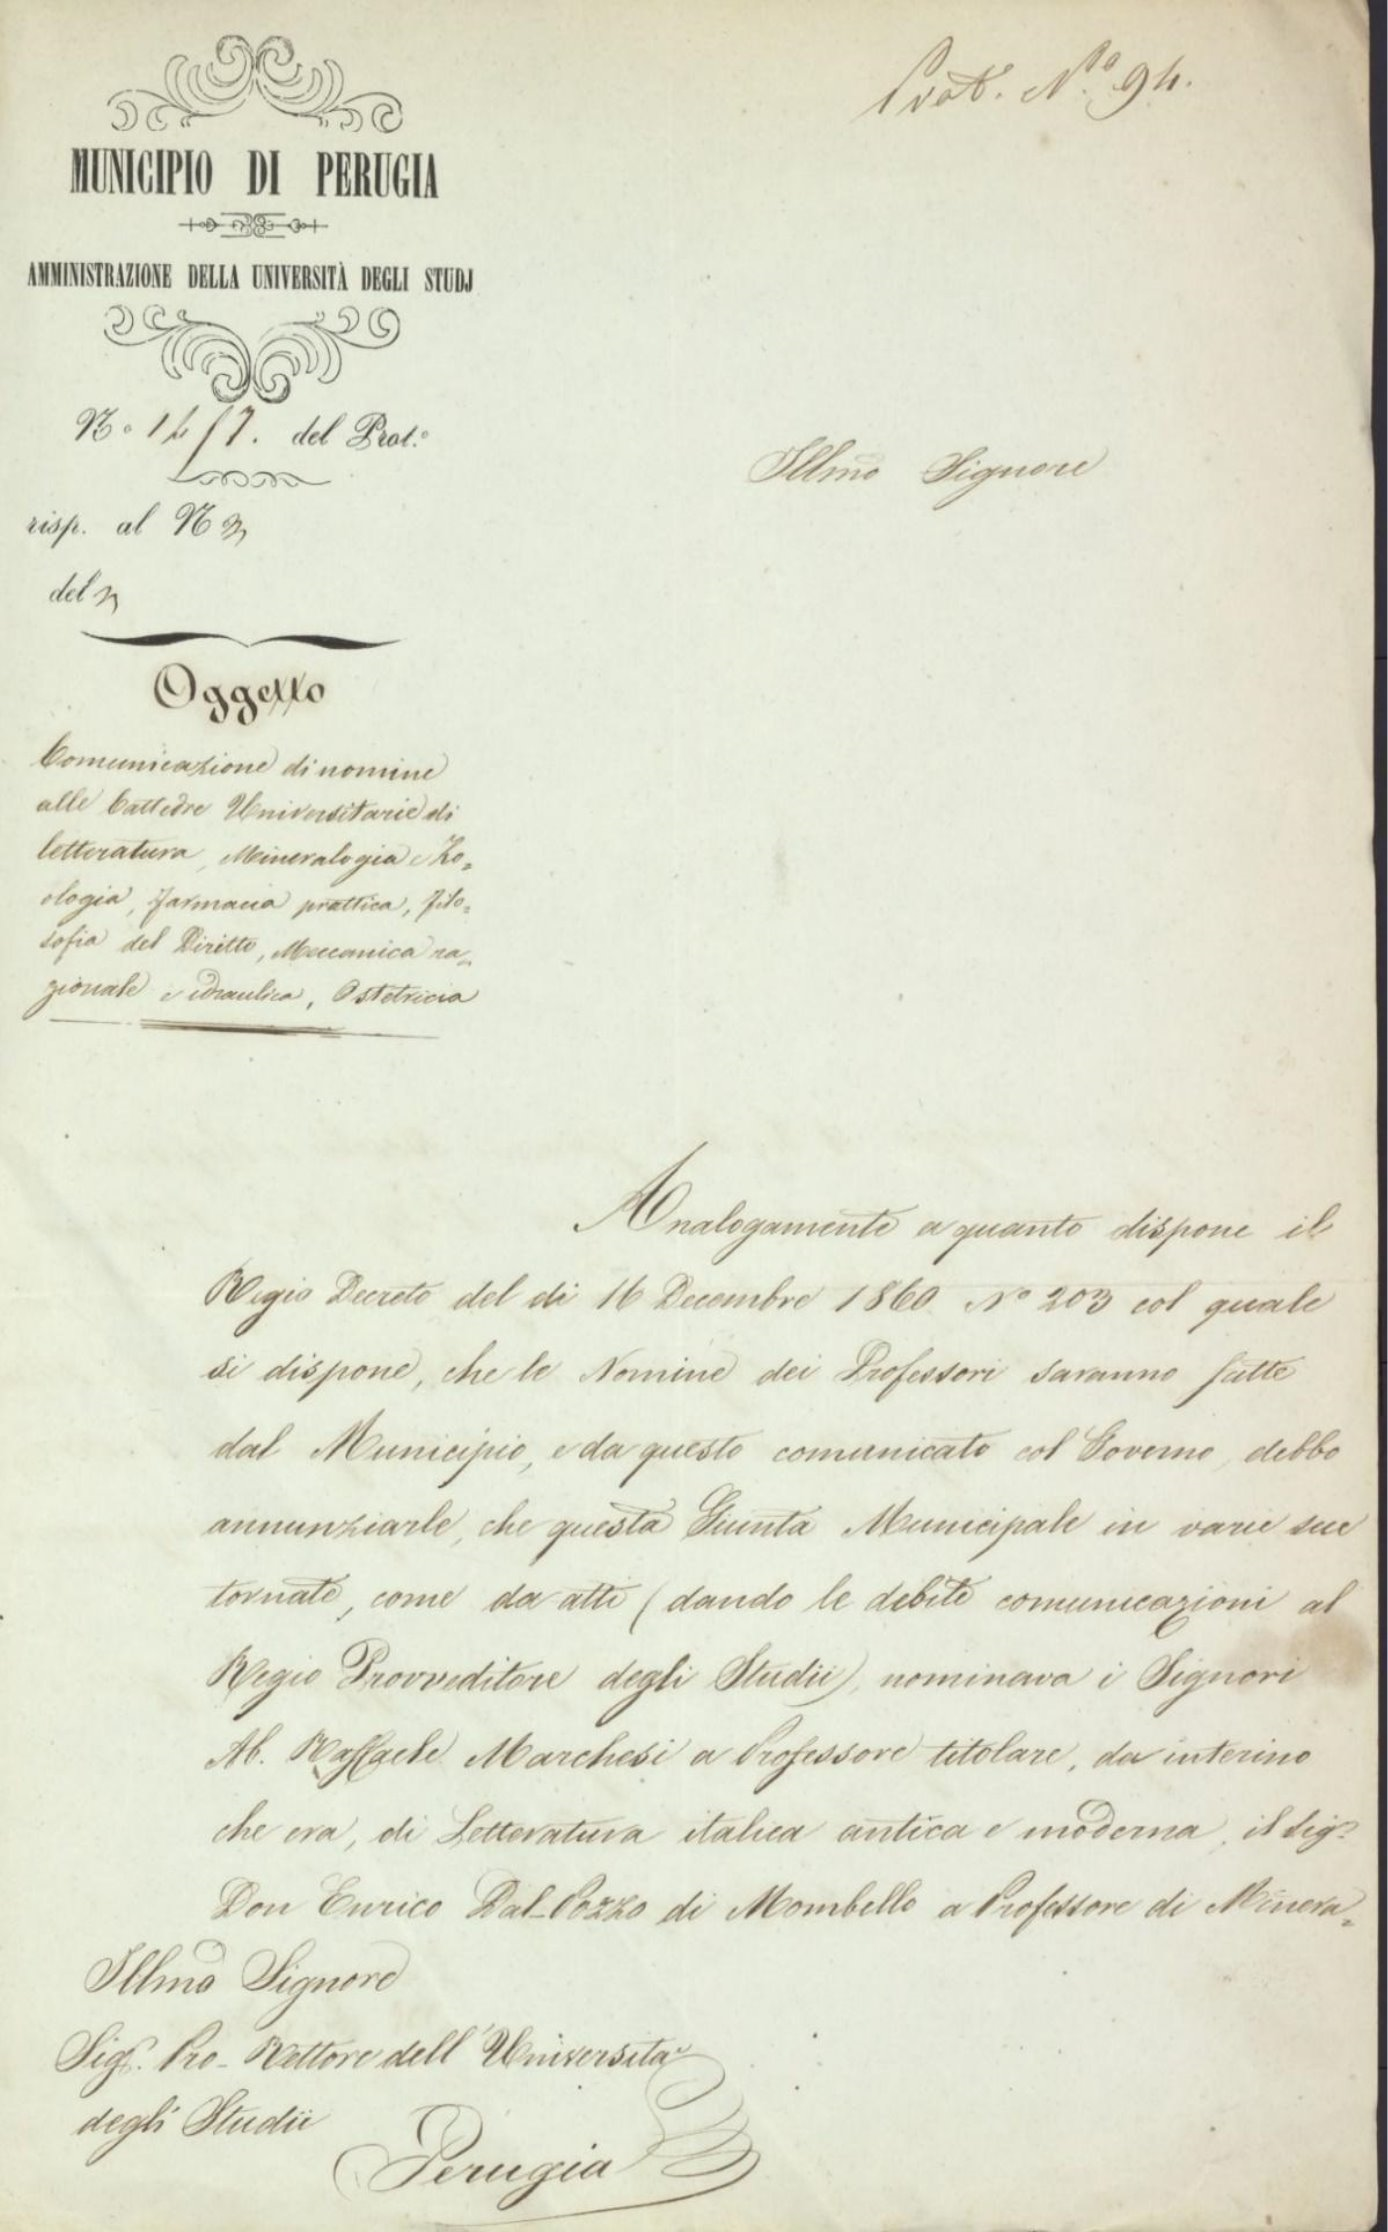 Prot. N.º 94.
MUNICIPIO DI PERUGIA
AMMINISTRAZIONE DELLA UNIVERSITÀ DEGLI STUDJ
Nº del Prot.º
Illmo Signore
risp. al N
del
Oggetto
Comunicazione di nomine
alle Cattedre Universitarie di
letteratura, Mineralogia e Zo=
ologia, farmacia prattica, filo=
sofia del Diritto, Meccanica ra=
zionale e idraulica, Ostetricia
Analogamente a quanto dispone il
Regio Decreto del di 16 Decembre 1860 Nº 203 col quale
si dispone, che le Nomine dei Professori saranno fatte
dal Municipio, e da questo comunicate col Governo, debbo
annunziarle, che questa Giunta Municipale in varie sue
tornate, come da atti (dando le debite comunicazioni al
Regio Provveditore degli Studii), nominava i Signori
Ab. Raffaele Marchesi a Professore titolare, da interino
che era, di Letteratura italica antica e moderna, il Sigr
Don Enrico Dal-Pozzo di Mombello a Professore di Minera=
Illmo Signore
Sigr. Pro-Rettore dell'Università
degli Studii
Perugia